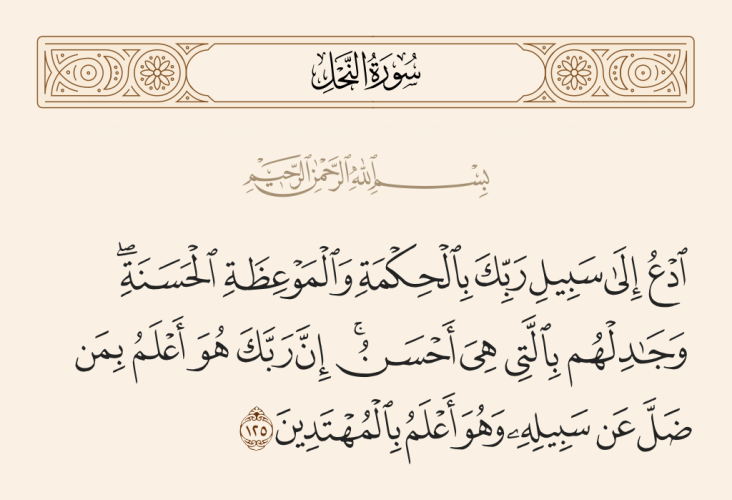 سُورَةُ النَّحْلِ
بِسْمِ ٱللَّهِ ٱلرَّحْمَٰنِ ٱلرَّحِيمِ
ٱدْعُ إِلَىٰ سَبِيلِ رَبِّكَ بِٱلْحِكْمَةِ وَٱلْمَوْعِظَةِ ٱلْحَسَنَةِۖ
وَجَٰدِلْهُم بِٱلَّتِى هِىَ أَحْسَنُۚ إِنَّ رَبَّكَ هُوَ أَعْلَمُ بِمَن
ضَلَّ عَن سَبِيلِهِۦ وَهُوَ أَعْلَمُ بِٱلْمُهْتَدِينَ ١٢٥